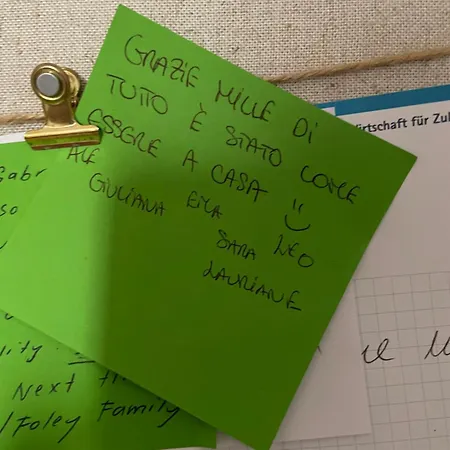 GRAZIE MILLE DI
TUTTO È STATO COME
ESSERE A CASA
ALE
GIULIANA EILA
SARA LEO
LAURIANE
Wirtschaft für Zu
Gabr
so
lity.
Next
Foley Family